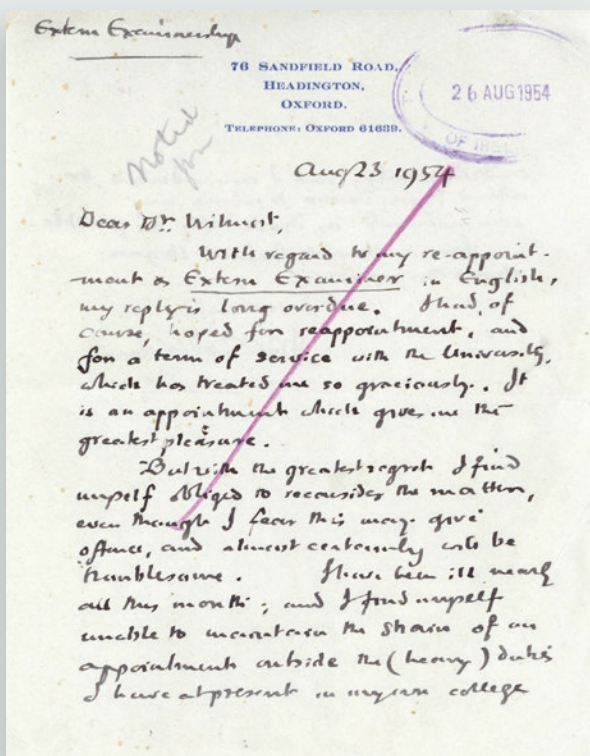 Extern Examinership
76 SANDFIELD ROAD,
HEADINGTON,
OXFORD.
TELEPHONE: OXFORD 61639.
26 AUG 1954
OF IREL
Noted
Aug 23 1954
Dear Dr. Wilmot,
With regard to my re-appoint-
ment as Extern Examiner in English,
my reply is long overdue. I had, of
course, hoped for reappointment, and
for a term of service with the University,
which has treated me so graciously. It
is an appointment which gives me the
greatest pleasure.
But with the greatest regret I find
myself obliged to reconsider the matter,
even though I fear this may give
offence, and almost certainly will be
troublesome. I have been ill nearly
all this month; and I find myself
unable to maintain the strain of an
appointment outside the (heavy) duties
I have at present in my own college